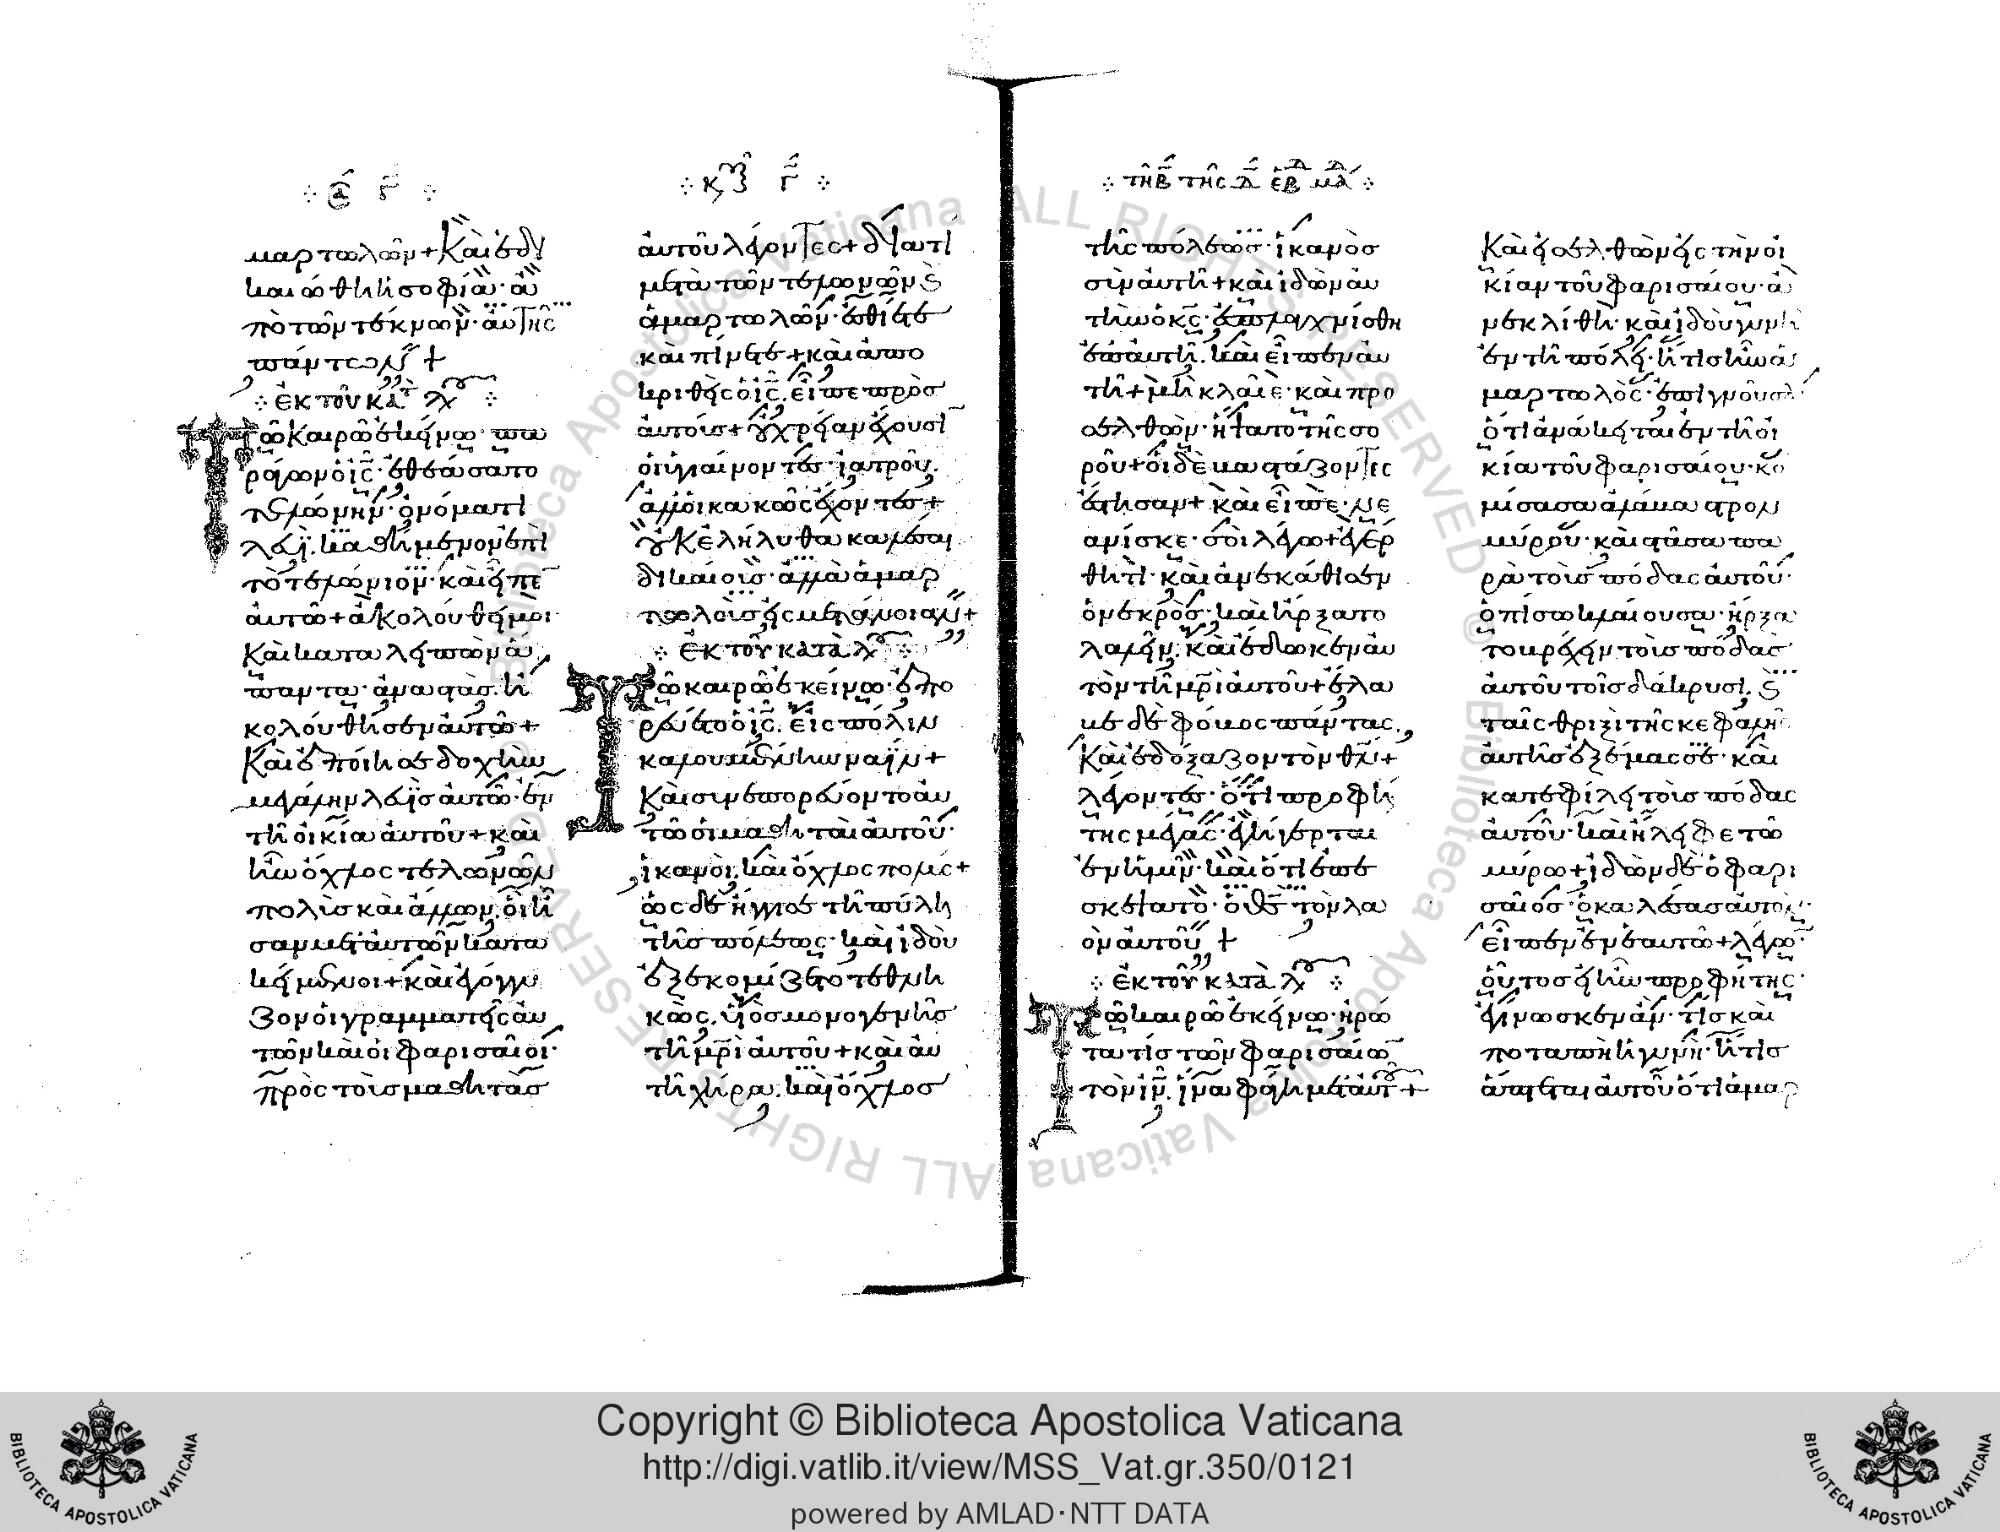 μαρτωλῶν + Καὶ ἐδι
καιώθη ἡ σοφία ἀ
πὸ τῶν τέκνων αὐτῆς
πάντων +
ἐκ τοῦ κατ
Τῷ καιρῷ ἐκείνῳ πα
ράγων ὁ ις ἐθεάσατο
τελώνην ὀνόματι
λευϊ καθήμενον ἐπὶ
τὸ τελώνιον καὶ εἶπεν
αὐτῷ + ἀκολούθει μοι
Καὶ καταλειπὼν ἅ
παντα ἀναστὰς ἠ
κολούθησεν αὐτῷ +
Καὶ ἐποίησε δοχὴν
μεγάλην λευῒς αὐτῷ ἐν
τῇ οἰκία αὐτοῦ + καὶ
ἦν ὄχλος τελωνῶν
πολὺς καὶ ἄλλων οἳ ἦ
σαν μετ αὐτῶν κατα
κείμενοι + καὶ ἐγόγγυ
ζον οἱ γραμματεῖς αὐ
τῶν καὶ οἱ φαρισαῖοι
πρὸς τοὺς μαθητὰς
αὐτοῦ λέγοντες + διατί
μετὰ τῶν τελωνῶν καὶ
ἁμαρτωλῶν ἐσθίετε
καὶ πίνετε + καὶ ἀπο
κριθεὶς ὁ ις εἶπε πρὸς
αὐτούς + οὐ χρείαν ἔχουσι
οἱ ὑγιαίνοντες ἰατροῦ
ἀλλ οἱ κακῶς ἔχοντες +
οὐκ ἐλήλυθα καλέσαι
δικαίους ἀλλὰ ἁμαρ
τωλοὺς εἰς μετάνοιαν +
ἐκ τοῦ κατὰ
Τῷ καιρῷ ἐκείνῳ ἐπο
ρεύετο ὁ ις εἰς πόλιν
καλουμένην ναΐν +
Καὶ συνεπορεύοντο αὐ
τῷ οἱ μαθηταὶ αὐτοῦ
ἱκανοὶ καὶ ὄχλος πολύς +
ὡς δὲ ἤγγισε τῇ πύλῃ
τῆς πόλεως καὶ ἰδοὺ
ἐξεκομίζετο τεθνη
κὼς υἱὸς μονογενὴς
τῇ μρι αὐτοῦ + καὶ αὐ
τὴ χήρα καὶ ὄχλος
τῇ β τῆς δ ἑβ
τῆς πόλεως ἱκανὸς
σὺν αὐτῇ + καὶ ἰδὼν αὐ
τὴν ὁ κς ἐσπλαγχνίσθη
ἐπ αὐτῇ καὶ εἶπεν αὐ
τῇ + μὴ κλαῖε καὶ προ
σελθὼν ἥψατο τῆς σο
ροῦ + οἱ δὲ βαστάζοντες
ἔστησαν + καὶ εἶπε νε
ανίσκε σοὶ λέγω + ἐγέρ
θητι καὶ ἀνεκάθισεν
ὁ νεκρὸς καὶ ἤρξατο
λαλεῖν καὶ ἔδωκεν αὐ
τὸν τῇ μρι αὐτοῦ + ἔλα
βε δὲ φόβος πάντας
Καὶ ἐδόξαζον τὸν θν +
λέγοντες ὅτι προφή
της μέγας ἐγήγερται
ἐν ἡμῖν καὶ ὅτι ἐπε
σκέψατο ὁ θς τὸν λα
ὸν αὐτοῦ +
ἐκ τοῦ κατὰ
Τῷ καιρῷ ἐκείνῳ ἠρώ
τα τίς τῶν φαρισαίων
τὸν ιν ἵνα φάγῃ μετ αὐτοῦ +
Καὶ εἰσελθὼν εἰς τὴν οἰ
κίαν τοῦ φαρισαίου ἀ
νεκλίθη καὶ ἰδοὺ γυνὴ
ἐν τῇ πόλει ἥτις ἦν ἁ
μαρτωλός ἐπιγνοῦσα
ὅτι ἀνάκειται ἐν τῇ οἰ
κία τοῦ φαρισαίου κο
μίσασα ἀλάβαστρον
μύρου καὶ στᾶσα πα
ρὰ τοὺς πόδας αὐτοῦ
ὀπίσω κλαίουσα ἤρξα
το βρέχειν τοὺς πόδας
αὐτοῦ τοῖς δάκρυσι καὶ
ταῖς θριξὶ τῆς κεφαλῆς
αὐτῆς ἐξέμασσε καὶ
κατεφίλει τοὺς πόδας
αὐτοῦ καὶ ἤλειφε τῷ
μύρῳ + ἰδὼν δὲ ὁ φαρι
σαῖος ὁ καλέσας αὐτὸν
εἶπεν ἐν ἑαυτῷ + λέγων
οὗτος εἰ ἦν προφήτης
ἐγίνωσκεν ἂν τίς καὶ
ποταπὴ ἡ γυνὴ ἥτις
ἅπτεται αὐτοῦ ὅτι ἁμαρ
Copyright © Biblioteca Apostolica Vaticana
http://digi.vatlib.it/view/MSS_Vat.gr.350/0121
powered by AMLAD·NTT DATA
BIBLIOTECA APOSTOLICA VATICANA
BIBLIOTECA APOSTOLICA VATICANA